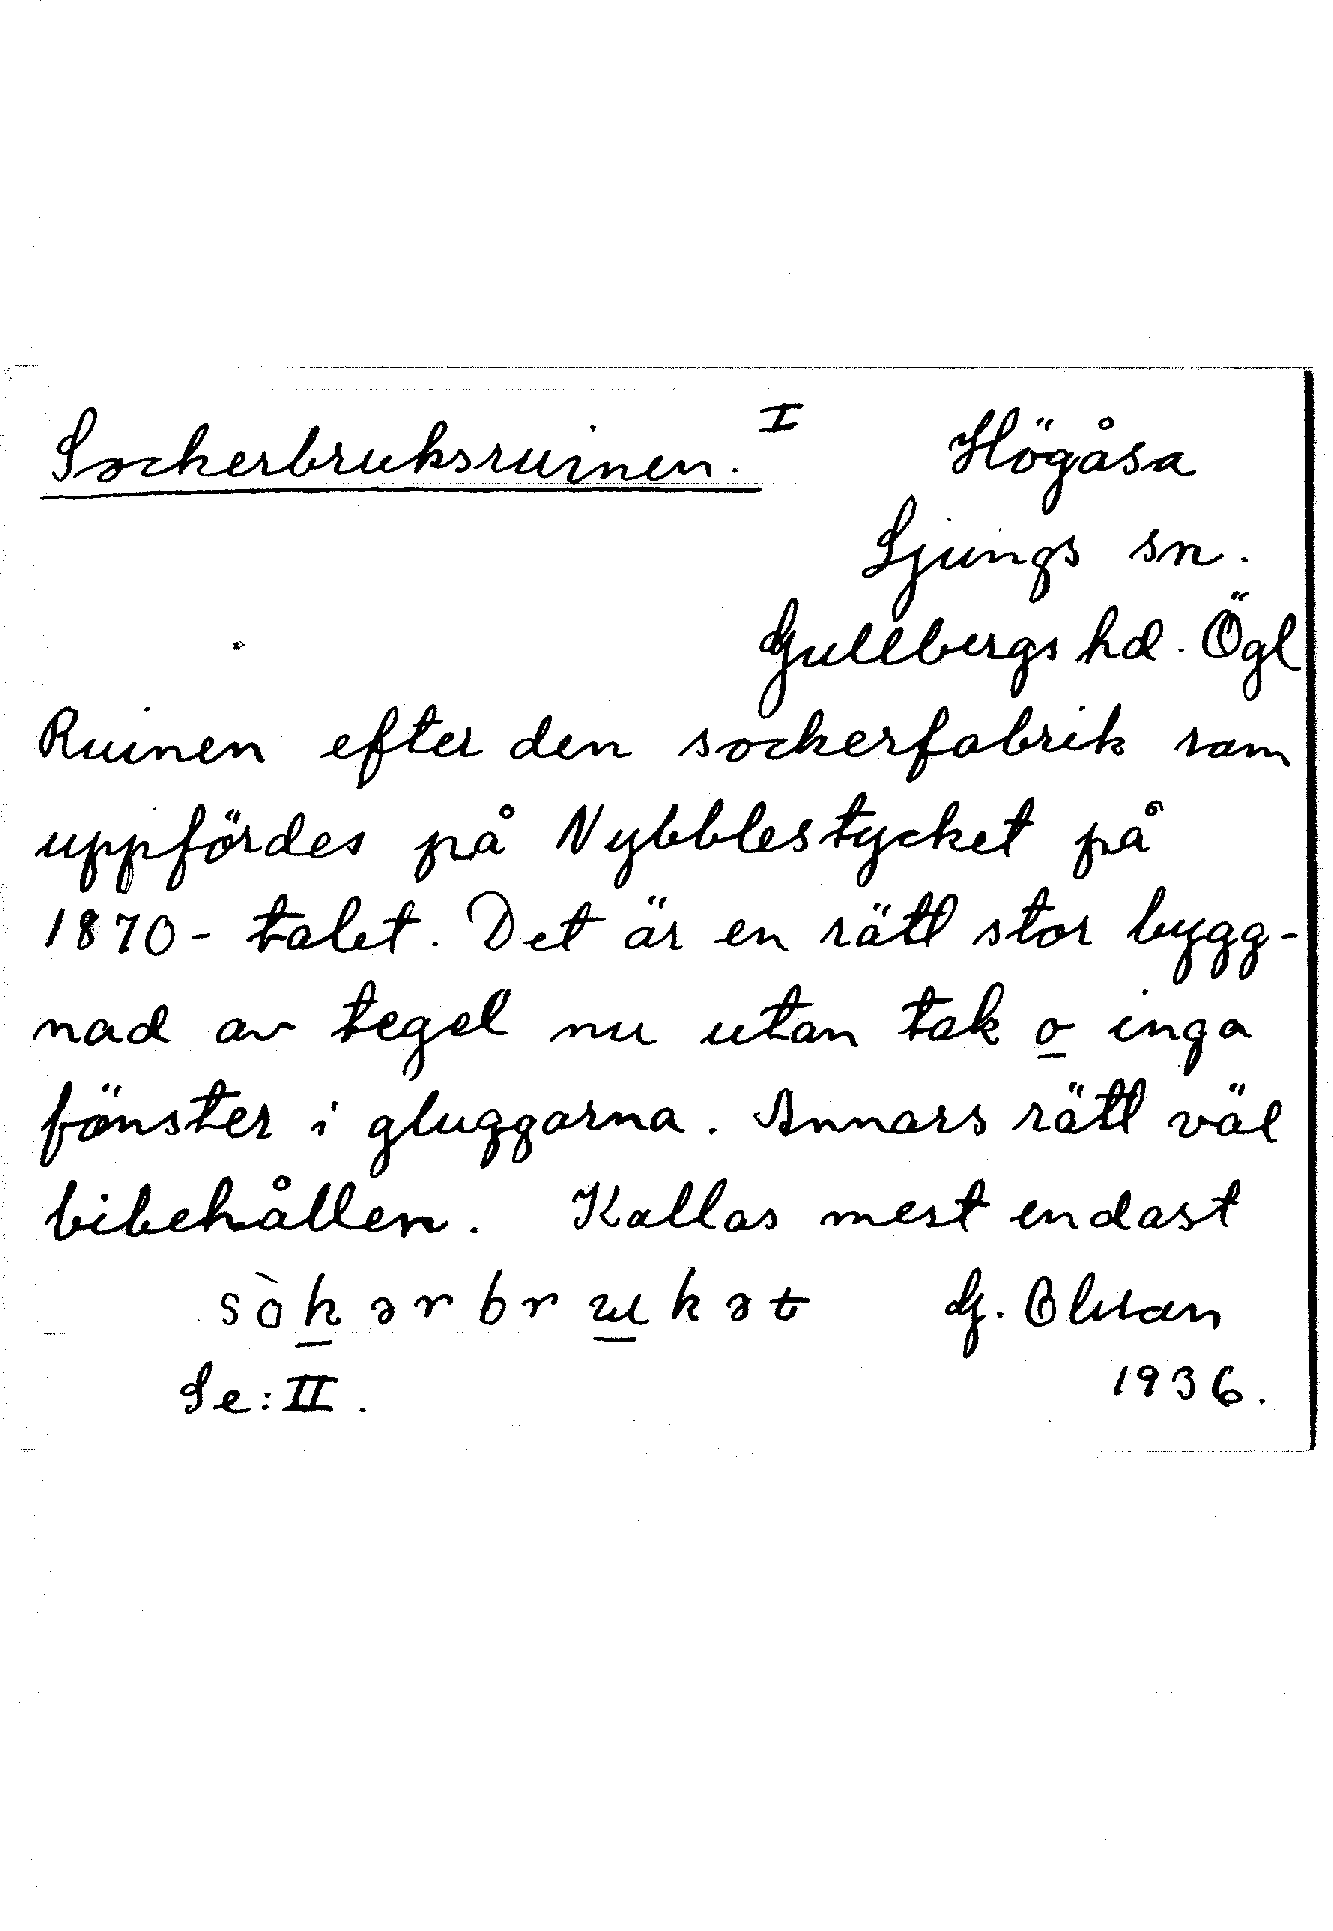 Sockerbruksruinen. I Högåsa
Ljungs sn.
Gullbergs hd. Ögl
Ruinen efter den sockerfabrik som
uppfördes på Nybblestycket på
1870-talet. Det är en rätt stor bygg-
nad av tegel nu utan tak o inga
fönster i gluggarna. Annars rätt väl
bibehållen. Kallas mest endast
sòkərbrukət G. Olson
Se: II. 1936.